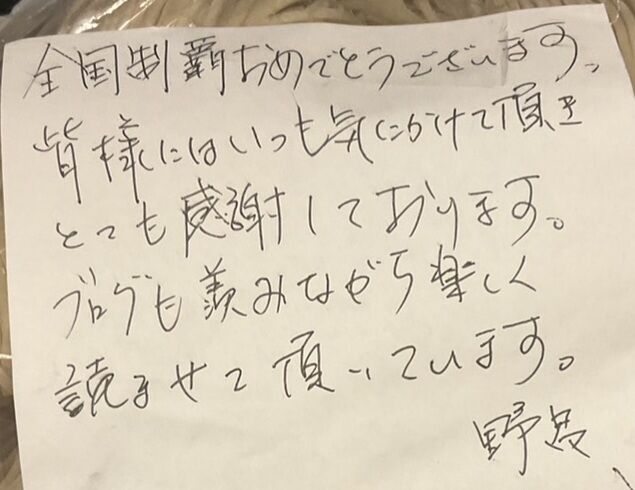 全国制覇おめでとうございます。
皆様にはいつも気にかけて頂き
とても感謝しております。
ブログも羨みながら楽しく
読ませて頂いています。
野呂